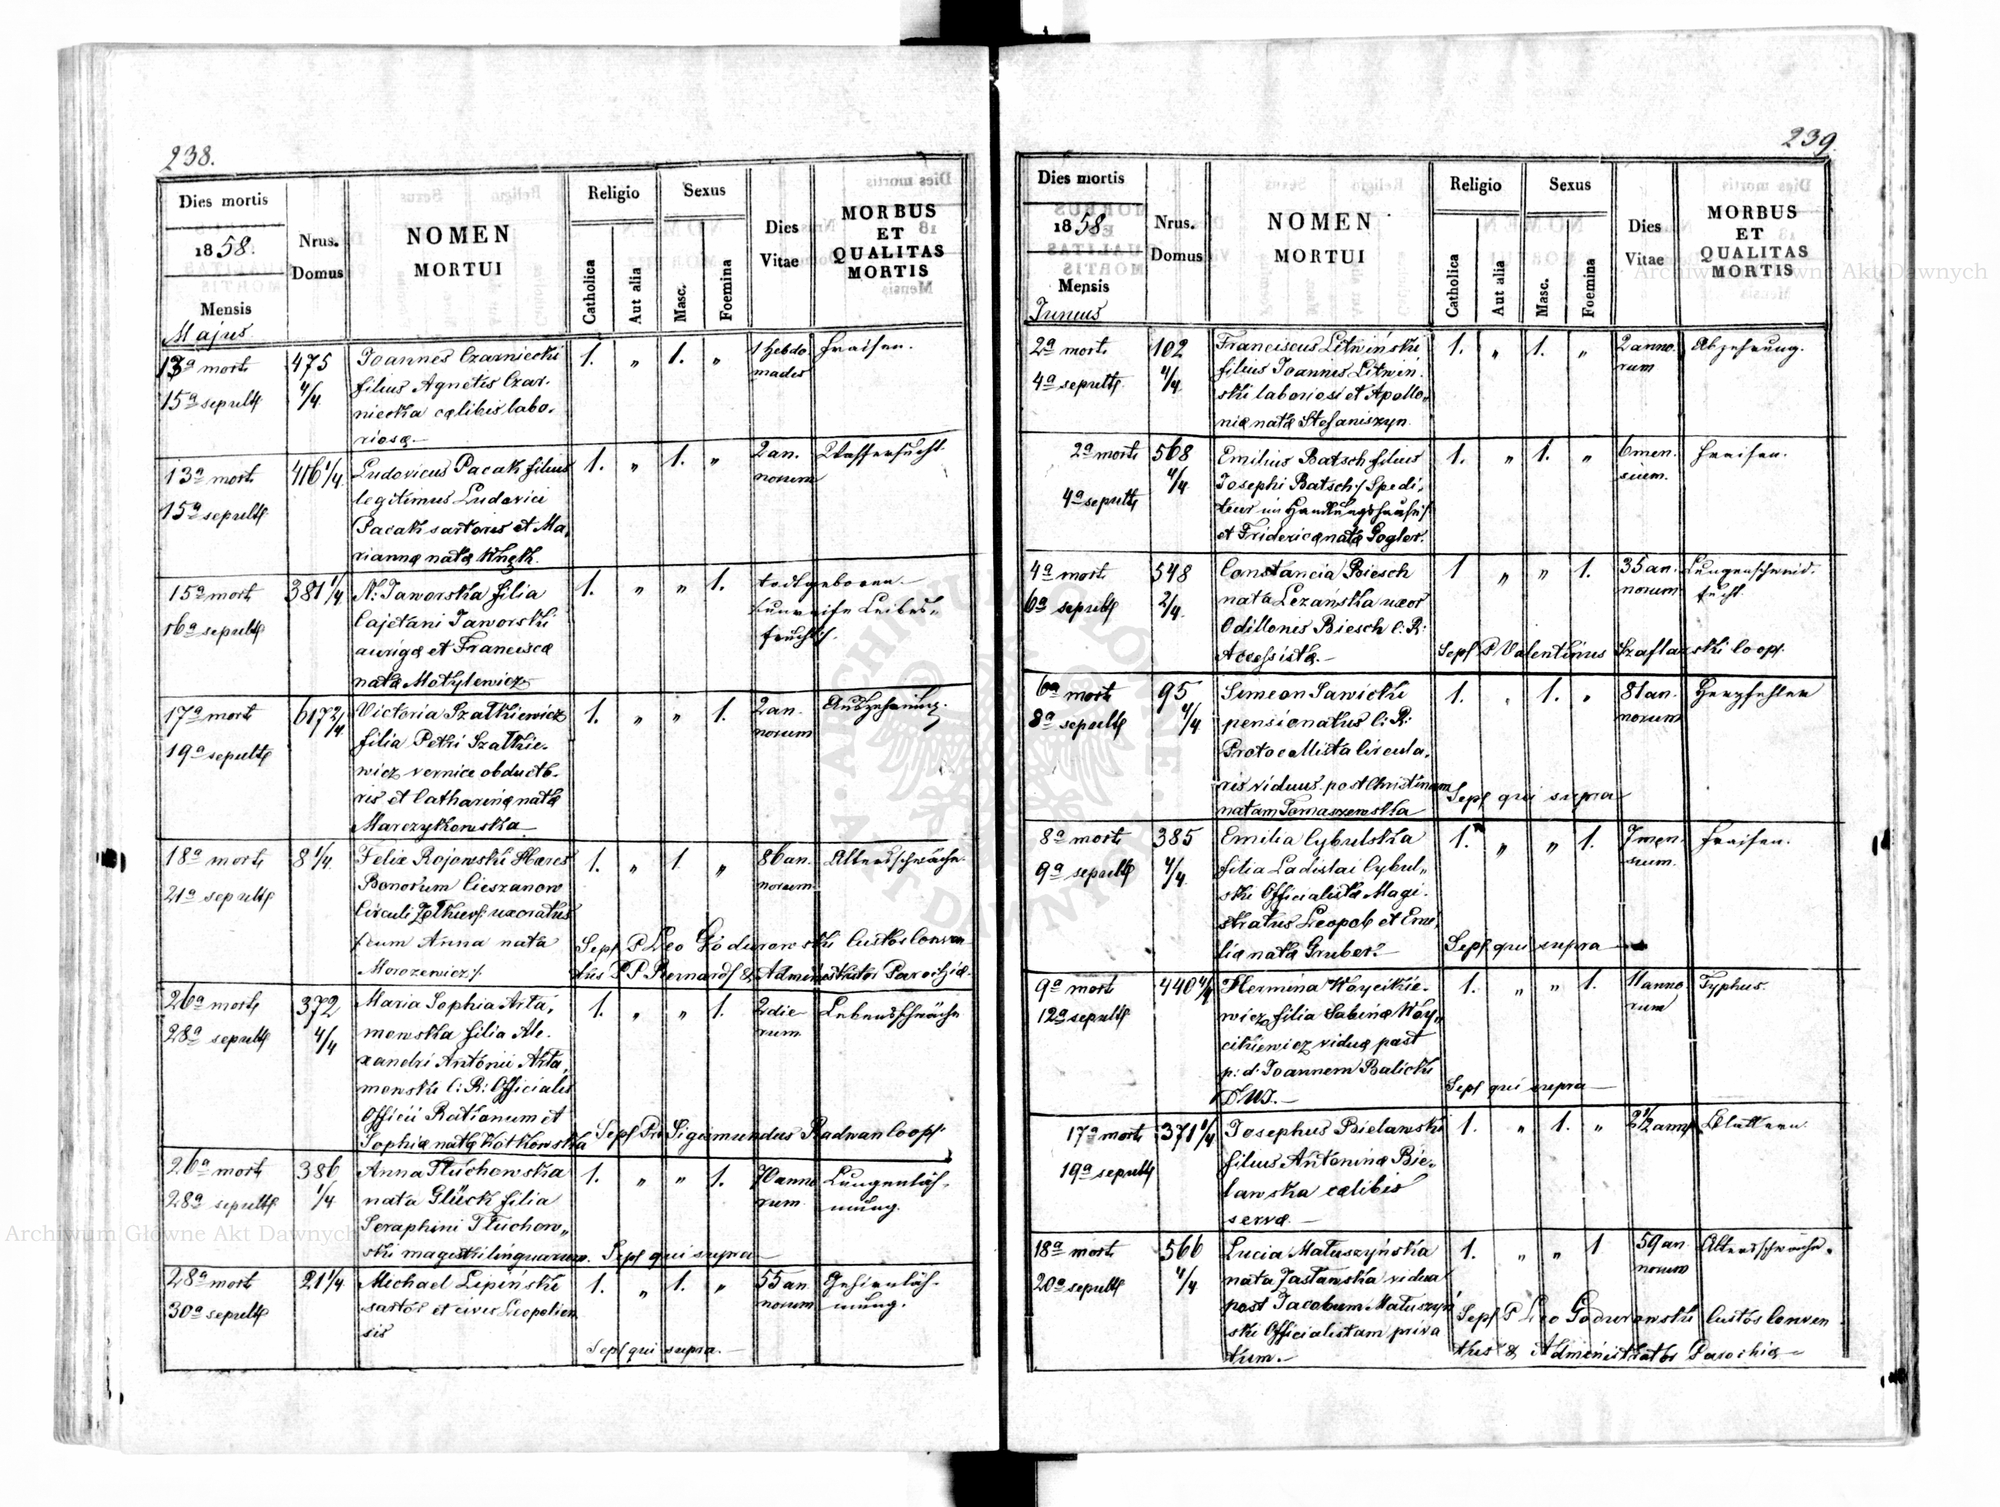 238.
Dies mortis
1858.
Mensis
Majus
Nrus.
Domus
NOMEN
MORTUI
Religio
Catholica
Aut alia
Sexus
Masc.
Foemina
Dies
Vitae
MORBUS
ET
QUALITAS
MORTIS
13a mort
15a sepult
475
4/4
Joannes Czarniecki
filius Agnetis Czar-
niecka caelibis labo-
riosae.
1. " 1. "
1 hebdo
mades
Fraisen.
13a mort
15a sepult
416 1/4
Ludovicus Pacak filius
legitimus Ludovici
Pacak sartoris et Ma-
riannae natae
1. " 1. "
2 an.
norum
Wassersucht.
15a mort
16a sepult
381 1/4
N: Jaworska filia
Cajetani Jaworski
aurigae et Franciscae
natae Motylewicz
1. " " 1.
todtgeboren.
unreife Leibes-
frucht
17a mort
19a sepult
617 2/4
Victoria Szatkiewicz
filia Petri Szatkie-
wicz vernice obducto-
ris et Catharinae natae
Marczykowska
1. " " 1.
2 an.
norum
Auszehrung.
18a mort
21a sepult
8 1/4
Felix Rojowski Haeres
Bonorum Cieszanow
Circuli Zolkiew: uxoratus
cum Anna nata
Morozewicz
1. " 1. "
86 an.
norum
Altersschwäche
Sep P Leo Godurowski Custos Conven-
tus PP Bernard & Administrator Parochiae.
26a mort
28a sepult
372
4/4
Maria Sophia Arta-
mowska filia Ale-
xandri Antonii Arta-
mowski C: R: Officialis
Officii Rationum et
Sophiae natae Kotkowska
1. " " 1.
2 die-
rum
Lebensschwäche
Sep Pr Sigismundus Radwan Coop
26a mort
28a sepult
386
1/4
Anna Tluchowska
nata Glück filia
Seraphini Tluchow-
ski magistri linguarum.
1. " " 1.
anno
rum
Lungenläh-
mung.
Sep qui supra
28a mort
30a sepult
21 1/4
Michael Lipiński
sartor et civis Leopolien
sis
1. " 1. "
55 an
norum
Gehirnläh-
mung.
Sep qui supra.
239.
Dies mortis
1858.
Mensis
Junius
Nrus.
Domus
NOMEN
MORTUI
Religio
Catholica
Aut alia
Sexus
Masc.
Foemina
Dies
Vitae
MORBUS
ET
QUALITAS
MORTIS
2a mort
4a sepult
102
4/4
Franciscus Litwiński
filius Joannis Litwin-
ski laboriosi et Apollo-
niae natae Stefaniszyn
1. " 1. "
2 anno-
rum
Abzehrung.
2a mort
4a sepult
568
4/4
Emilius Batsch filius
Josephi Batsch Spedi-
teur im
et Fridericae natae Gogler.
1. " 1. "
6 men-
sium.
Fraisen.
4a mort
6a sepult
548
2/4
Constancia Biesch
nata Lezańska uxor
Odillonis Biesch C: R:
Accessistae.
1 " " 1.
35 an-
norum
Sep P Valentinus Szaflarski Coop.
6a mort
8a sepult
95
4/4
Simeon Sawicki
pensionatus C: R:
Protocollista Circula-
ris viduus post Christinam
natam Tomaszewska
1. " 1. "
81 an-
norum
Herzfehler
Sep qui supra
8a mort
9a sepult
385
4/4
Emilia Cybulska
filia Ladislai Cybul-
ski Officialistae Magi-
stratus Leopol et Emi-
liae natae Gruber
1. " " 1.
7 men-
sium.
Fraisen.
Sep qui supra
9a mort
12a sepult
440 4/4
Hermina Woycikie-
wicz filia Sabinae Woy-
cikiewicz viduae post
p: d: Joannem Balicki
1. " " 1.
11 anno
rum
Typhus.
Sep qui supra
17a mort
19a sepult
371 1/4
Josephus Bielawski
filius Antoninae Bie-
lawska caelibis
servae
1. " 1. "
2 1/2 an
Blattern.
18a mort
20a sepult
566
4/4
Lucia Matuszyńska
nata Jastawska vidua
post Jacobum Matuszyń
ski Officialistam priva
tum.
1. " " 1
59 an
norum
Altersschwäche.
Sep P Leo Godurowski Custos Conven
tus & Administrator Parochiae
Archiwum Główne Akt Dawnych
Archiwum Główne Akt Dawnych
ARCHIWUM GŁÓWNE AKT DAWNYCH